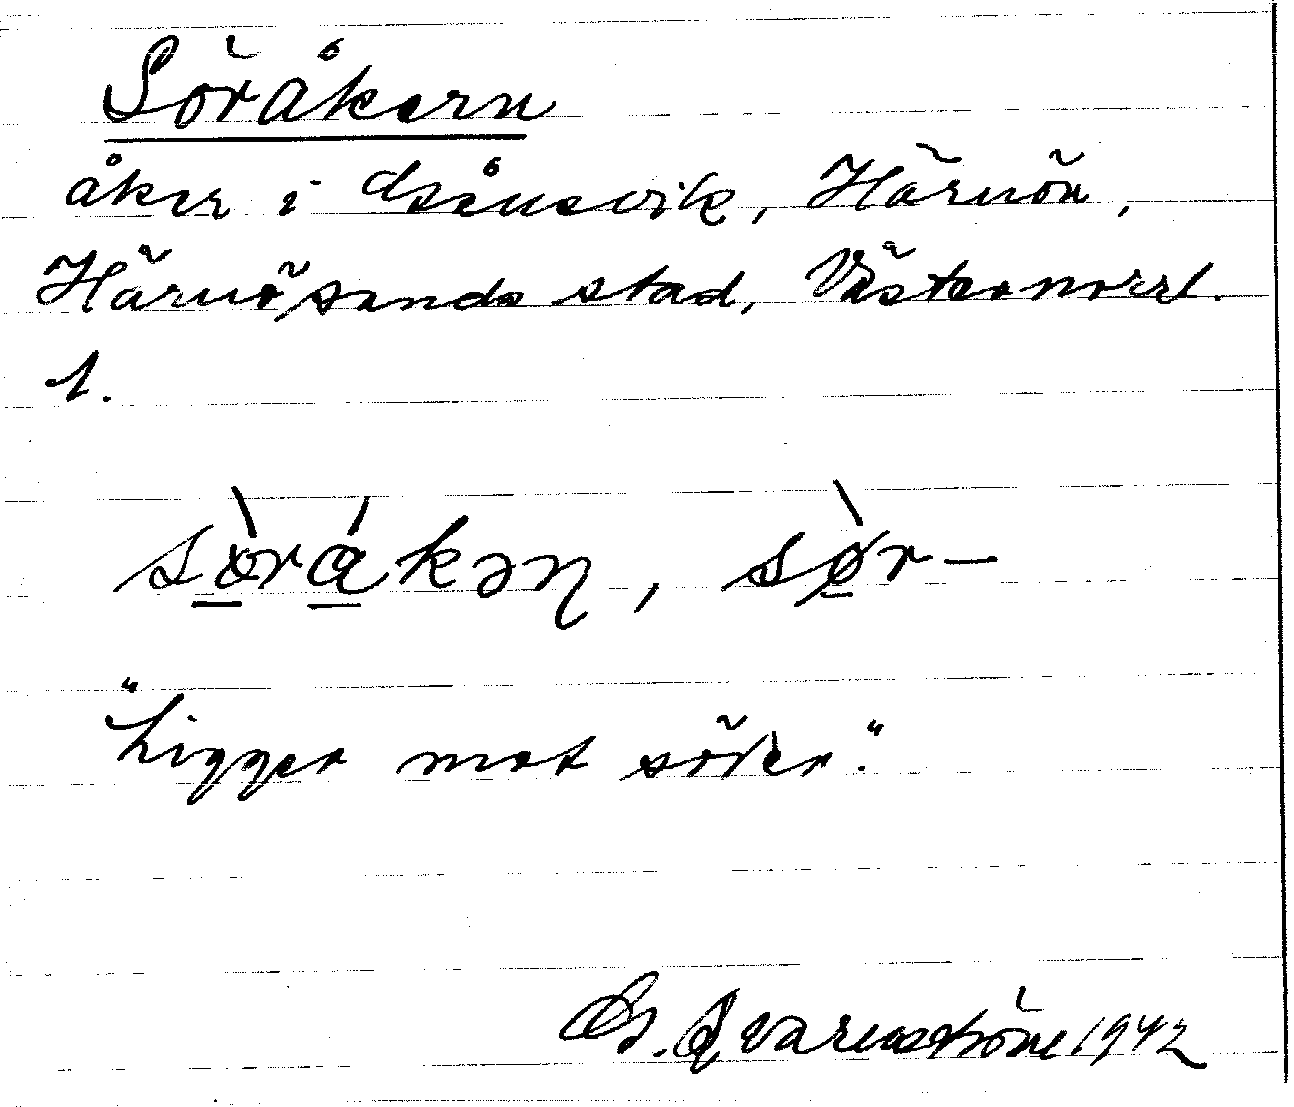 Söråkern
åker i Gånsvik, Härnön,
Härnösands stad, Västernorrl.
l.
sòrákəƞ, sør–
"Ligger mot söder."
G. Qvarnström 1942